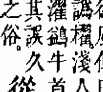 櫂淺人
濯鷁牛首
其誤久
之俗。
從